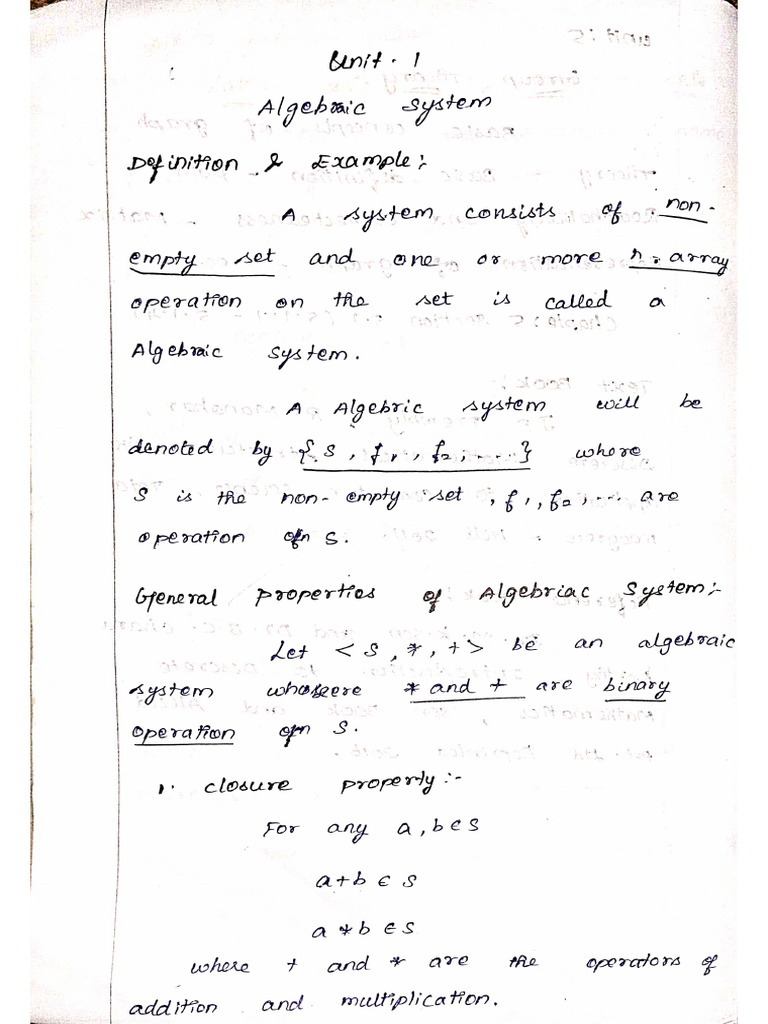 Unit - 1
Algebraic System
Definition & Example :-
A system consists of non-
empty set and one or more n-array
operation on the set is called a
Algebraic system.
A Algebric system will be
denoted by {S, f1, f2, ....} where
S is the non-empty set, f1, f2, ... are
operation on S.
General properties of Algebriac System:-
Let < S, *, +> be an algebraic
system where * and + are binary
operation on S.
1. closure property :-
For any a, b ∈ S
a+b ∈ S
a * b ∈ S
where + and * are the operators of
addition and multiplication.